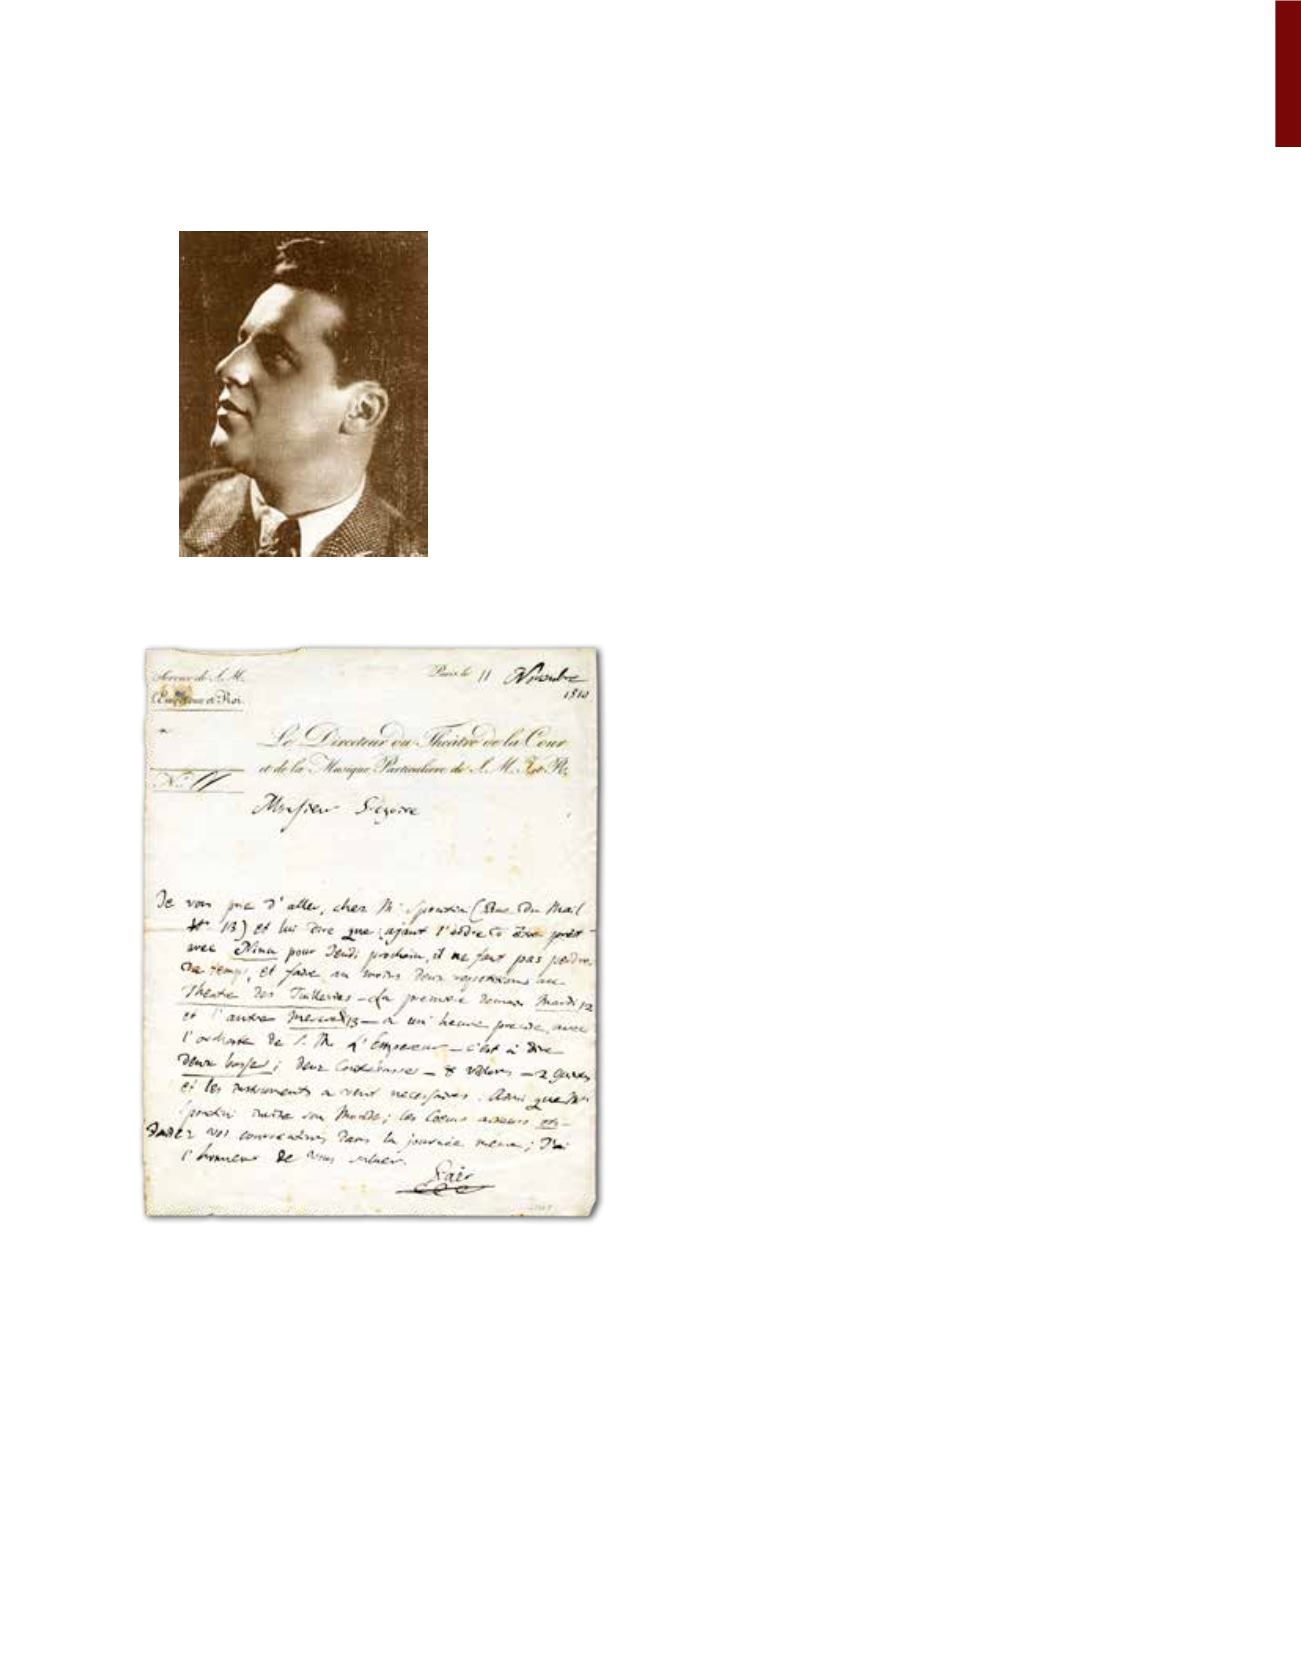 Service de S. M.
l'Empereur et Roi.
Paris le 11 Novembre
1810
Le Directeur du Théâtre de la Cour
et de la Musique Particulière de S. M. I. et R.
N.º
Monsieur Grégoire
Je vous prie d'aller, chez Mr Spontin (Rue du Mail
Nº 13) et lui dire que ayant l'ordre d'être prêt
avec Nina pour Jeudi prochain, il ne faut pas perdre
de temp, et faire au moins deux repetitions au
Théatre des Tuilleries – La première demain Mardi 12
et l'autre Mercredi 13 – a un' heure precise, avec
l'orchestre de S. M. L'Empereur – c'est à dire
deux basses; deux Contrebasses – 8 violons – 2 quintes
et les instruments a vent necessaires. Ainsi que Mr
Spontini son Monde; les Coeurs
vos dans la journée meme; J'ai
l'honneur de vous saluer.
Paër